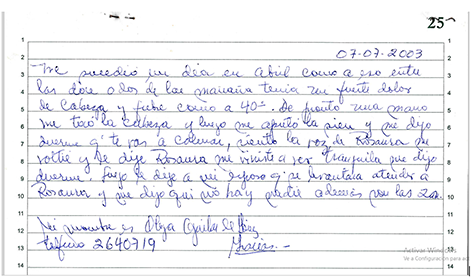 25
07-07-2003
Me sucedió un día en abril como a eso entre
las doce o dos de la mañana tenía un fuerte dolor
de cabeza y fiebre como a 40°. De pronto una mano
me tocó la cabeza y luego me apretó la sien y me dijo
duerme q' te vas a calmar, siento la voz de Rosaura me
voltié y le dije Rosaura me viniste a ver tranquila me dijo
duerme, luego le dije a mi esposo q' se levantara atender a
Rosaura y me dijo qui no hay nadie además son las 2am.
Mi nombre es Olga de
teléfono 2640719 Gracias.-
Activar Windows
Ve a Configuración para